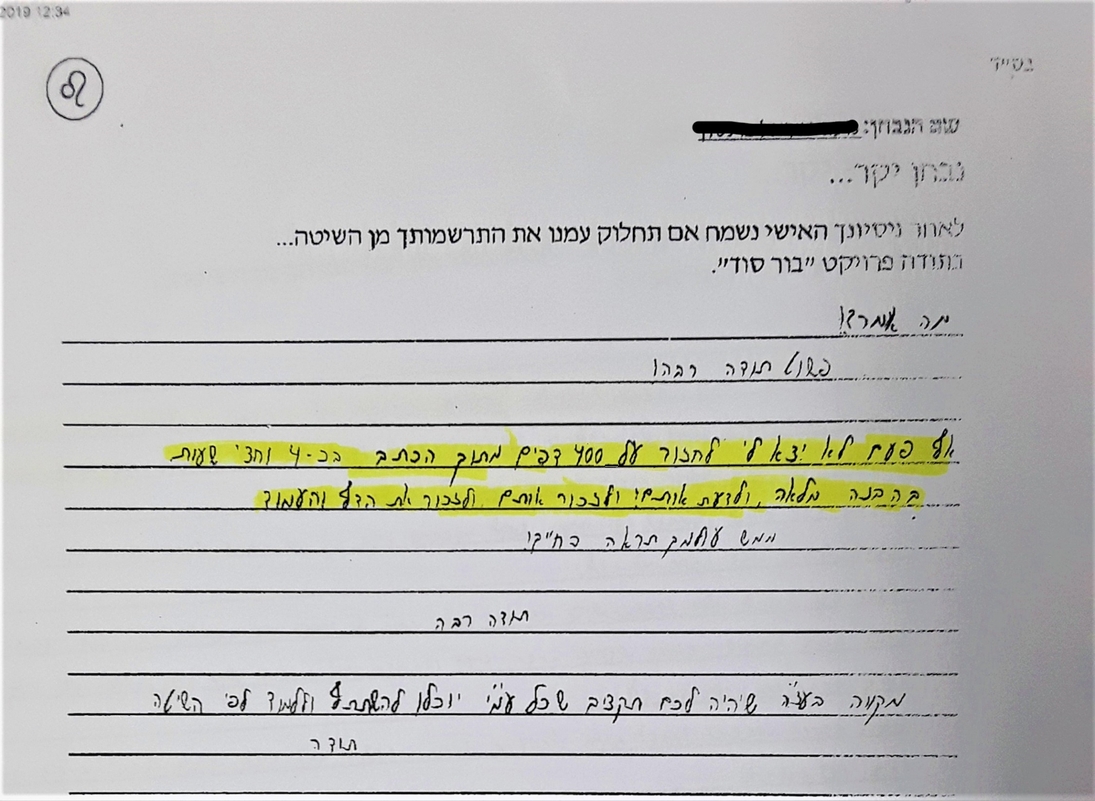 2019 12:34
בס״ד
שם הנבחן:
נבחן יקר...
לאחר ניסיונך האישי נשמח אם תחלוק עמנו את התרשמותך מן השיטה...
בתודה פרויקט ״בור סוד״.
מה אומר?!
פשוט תודה רבה!
אף פעם לא יצא לי לחזור על 400 דפים מתוך הכתב בכ-4 וחצי שעות
בהבנה מלאה, ולדעת אותם! ולזכור אותם, ולזכור את הדף והעמוד
ממש עולמך תראה בחייך!
תודה רבה
מקווה בע״ה שיהיה לכם תקציב שכל עמ״י יוכלו להשתתף וללמוד לפי השיטה
תודה